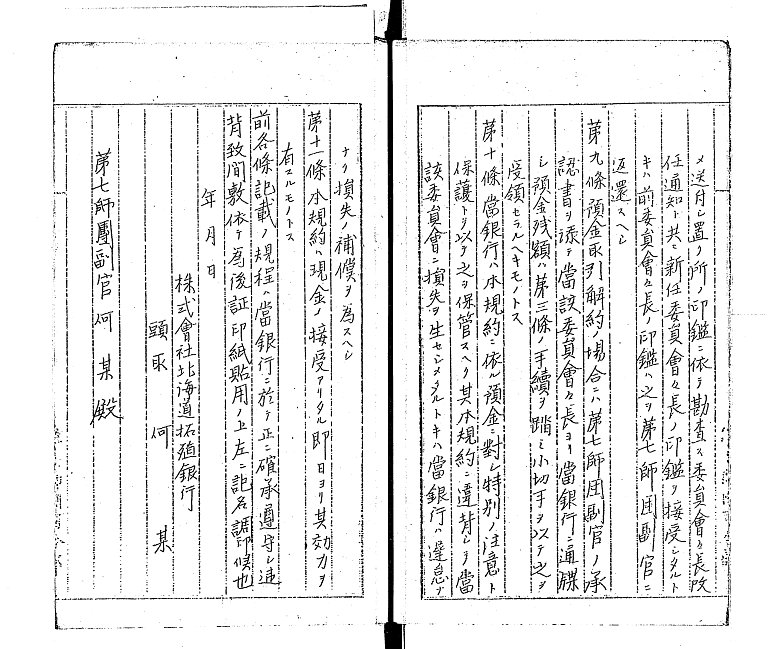 メ送付シ置ク所ノ印鑑ニ依テ勘査ス委員會々長改
任通知ト共ニ新任委員會々長ノ印鑑ヲ接受シタルト
キハ前委員會々長ノ印鑑ハ之ヲ第七師団副官ニ
返還スヘシ
第九條 預金取引解約ノ場合ニハ第七師団副官ノ承
認書ヲ添テ當該委員會々長ヨリ當銀行ニ通牒
シ預金残額ハ第三條ノ手續ヲ踏ミ小切手ヲ以テ之ヲ
受領セラルヘキモノトス
第十條 當銀行ハ本規約ニ依ル預金ニ對シ特別ノ注意ト
保護トヲ以テ之ヲ保管スヘク其本規約ニ違背シテ當
該委員會ニ損失ヲ生セシメタルトキハ當銀行ハ遅怠ナ
ナク損失ノ補償ヲ為スヘシ
第十一條 本規約ハ現金ノ接受アリタル即日ヨリ其効力ヲ
有スルモノトス
前各條記載ノ規程ハ當銀行ニ於テ正ニ確承遵守シ違
背致間敷依テ為後証印紙貼用ノ上左ニ記名調印候也
年月日
株式會社北海道拓殖銀行
頭取 何 某
第七師團副官何某殿